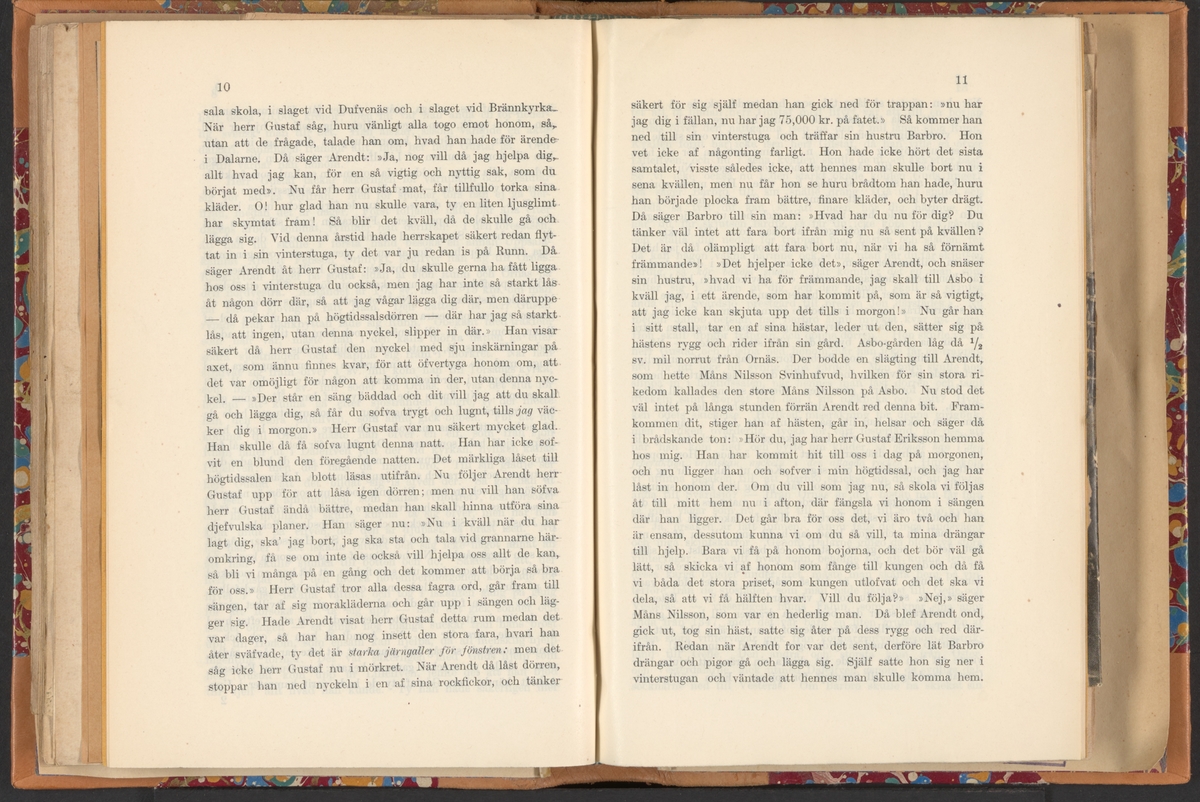 10
sala skola, i slaget vid Dufvenäs och i slaget vid Brännkyrka.
När herr Gustaf såg, huru vänligt alla togo emot honom, så,
utan att de frågade, talade han om, hvad han hade för ärende
i Dalarne. Då säger Arendt: »Ja, nog vill då jag hjelpa dig,
allt hvad jag kan, för en så vigtig och nyttig sak, som du
börjat med». Nu får herr Gustaf mat, får tillfullo torka sina
kläder. O! hur glad han nu skulle vara, ty en liten ljusglimt
har skymtat fram! Så blir det kväll, då de skulle gå och
lägga sig. Vid denna årstid hade herrskapet säkert redan flyt-
tat in i sin vinterstuga, ty det var ju redan is på Runn. Då
säger Arendt åt herr Gustaf: »Ja, du skulle gerna ha fått ligga
hos oss i vinterstuga du också, men jag har inte så starkt lås
åt någon dörr där, så att jag vågar lägga dig där, men däruppe
— då pekar han på högtidssalsdörren — där har jag så starkt
lås, att ingen, utan denna nyckel, slipper in där.» Han visar
säkert då herr Gustaf den nyckel med sju inskärningar på
axet, som ännu finnes kvar, för att öfvertyga honom om, att
det var omöjligt för någon att komma in der, utan denna nyc-
kel. — »Der står en säng bäddad och dit vill jag att du skall
gå och lägga dig, så får du sofva trygt och lugnt, tills jag väc-
ker dig i morgon.» Herr Gustaf var nu säkert mycket glad.
Han skulle då få sofva lugnt denna natt. Han har icke sof-
vit en blund den föregående natten. Det märkliga låset till
högtidssalen kan blott läsas utifrån. Nu följer Arendt herr
Gustaf upp för att låsa igen dörren; men nu vill han söfva
herr Gustaf ändå bättre, medan han skall hinna utföra sina
djefvulska planer. Han säger nu: »Nu i kväll när du har
lagt dig, ska' jag bort, jag ska sta och tala vid grannarne här-
omkring, få se om inte de också vill hjelpa oss allt de kan,
så bli vi många på en gång och det kommer att börja så bra
för oss.» Herr Gustaf tror alla dessa fagra ord, går fram till
sängen, tar af sig morakläderna och går upp i sängen och läg-
ger sig. Hade Arendt visat herr Gustaf detta rum medan det
var dager, så har han nog insett den stora fara, hvari han
åter sväfvade, ty det är starka järngaller för fönstren: men det
såg icke herr Gustaf nu i mörkret. När Arendt då låst dörren,
stoppar han ned nyckeln i en af sina rockfickor, och tänker
11
säkert för sig själf medan han gick ned för trappan: »nu har
jag dig i fällan, nu har jag 75,000 kr. på fatet.» Så kommer han
ned till sin vinterstuga och träffar sin hustru Barbro. Hon
vet icke af någonting farligt. Hon hade icke hört det sista
samtalet, visste således icke, att hennes man skulle bort nu i
sena kvällen, men nu får hon se huru brådtom han hade, huru
han började plocka fram bättre, finare kläder, och byter drägt.
Då säger Barbro till sin man: »Hvad har du nu för dig? Du
tänker väl intet att fara bort ifrån mig nu så sent på kvällen?
Det är då olämpligt att fara bort nu, när vi ha så förnämt
främmande»! »Det hjelper icke det», säger Arendt, och snäser
sin hustru, »hvad vi ha för främmande, jag skall till Asbo i
kväll jag, i ett ärende, som har kommit på, som är så vigtigt,
att jag icke kan skjuta upp det tills i morgon!» Nu går han
i sitt stall, tar en af sina hästar, leder ut den, sätter sig på
hästens rygg och rider ifrån sin gård. Asbo-gården låg då 1/2
sv. mil norrut från Ornäs. Der bodde en slägting till Arendt,
som hette Måns Nilsson Svinhufvud, hvilken för sin stora ri-
kedom kallades den store Måns Nilsson på Asbo. Nu stod det
väl intet på långa stunden förrän Arendt red denna bit. Fram-
kommen dit, stiger han af hästen, går in, helsar och säger då
i brådskande ton: »Hör du, jag har herr Gustaf Eriksson hemma
hos mig. Han har kommit hit till oss i dag på morgonen,
och nu ligger han och sofver i min högtidssal, och jag har
låst in honom der. Om du vill som jag nu, så skola vi följas
åt till mitt hem nu i afton, där fängsla vi honom i sängen
där han ligger. Det går bra för oss det, vi äro två och han
är ensam, dessutom kunna vi om du så vill, ta mina drängar
till hjelp. Bara vi få på honom bojorna, och det bör väl gå
lätt, så skicka vi af honom som fånge till kungen och då få
vi båda det stora priset, som kungen utlofvat och det ska vi
dela, så att vi få hälften hvar. Vill du följa?» »Nej,» säger
Måns Nilsson, som var en hederlig man. Då blef Arendt ond,
gick ut, tog sin häst, satte sig åter på dess rygg och red där-
ifrån. Redan när Arendt for var det sent, derföre lät Barbro
drängar och pigor gå och lägga sig. Själf satte hon sig ner i
vinterstugan och väntade att hennes man skulle komma hem.